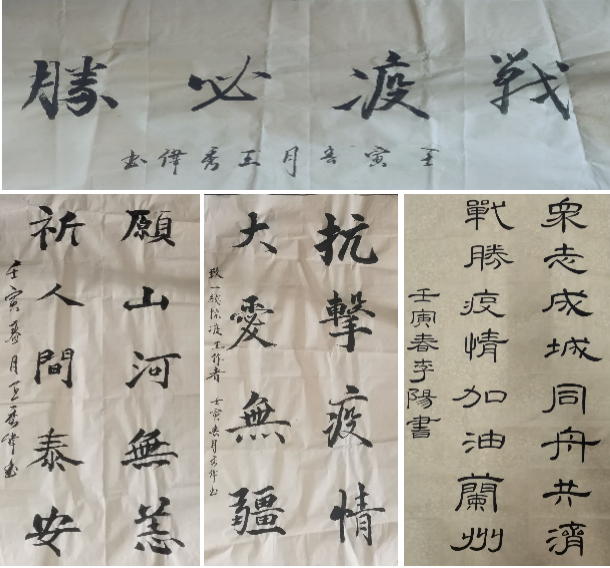 戰疫必勝
壬寅春月王秀偉書
願山河無恙
祈人間泰安
壬寅春月王秀偉書
抗擊疫情
大愛無疆
致一线抗疫工作者 壬寅春月秀偉書
衆志成城同舟共濟
戰勝疫情加油蘭州
壬寅春李陽書